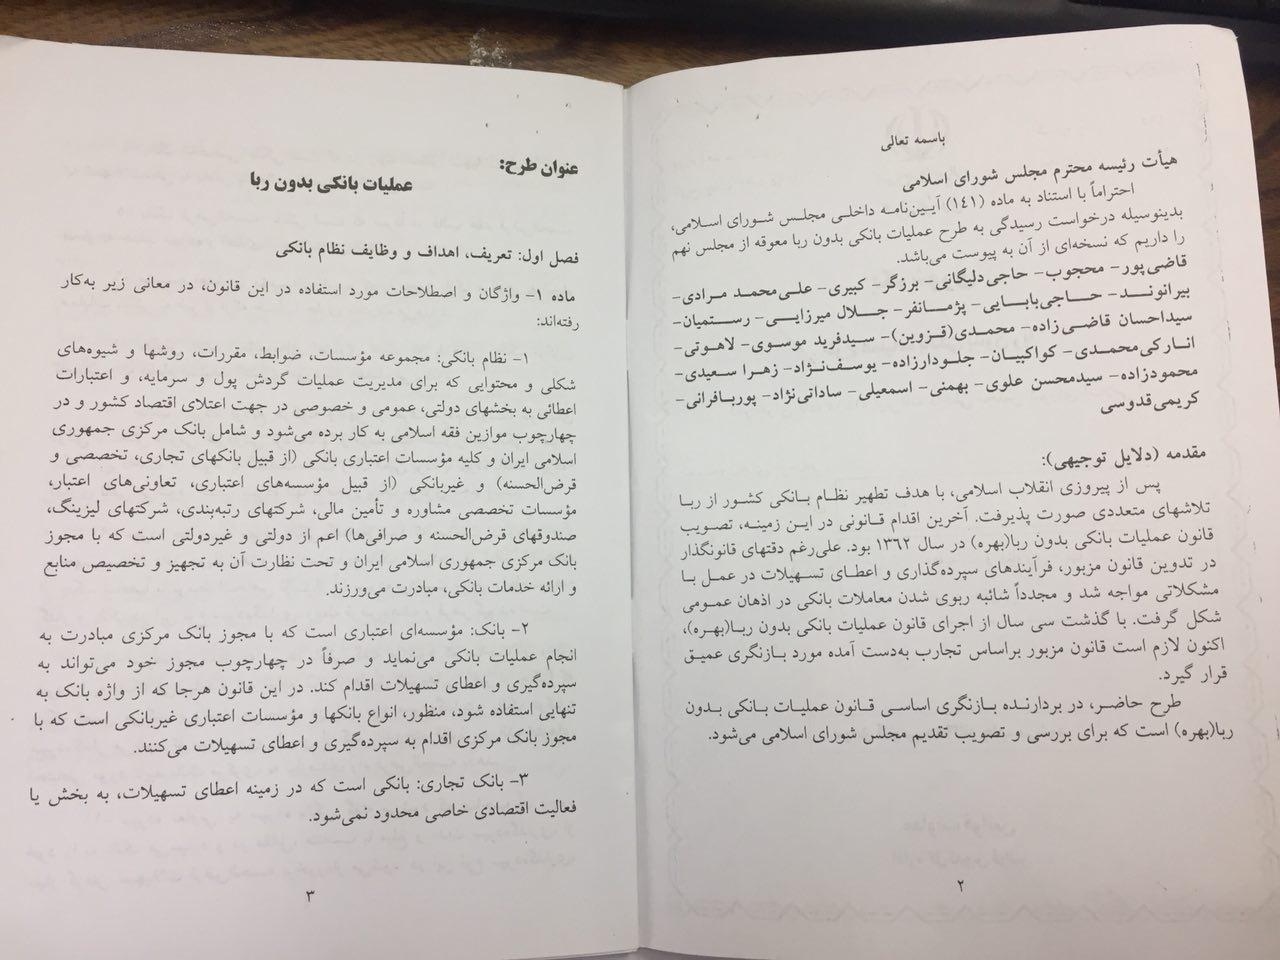 باسمه تعالی
هیأت رئیسه محترم مجلس شورای اسلامی
احتراماً با استناد به ماده (۱۴۱) آیین‌نامه داخلی مجلس شورای اسلامی،
بدینوسیله درخواست رسیدگی به طرح عملیات بانکی بدون ربا معوقه از مجلس نهم
را داریم که نسخه‌ای از آن به پیوست می‌باشد.
قاضی‌پور- محجوب- حاجی‌دلیگانی- برزگر- کبیری- علی‌محمد مرادی-
بیرانوند- حاجی‌بابایی- پژمانفر- جلال میرزایی- رستمیان-
سیداحسان قاضی‌زاده- محمدی(قزوین)- سیدفرید موسوی- لاهوتی-
انارکی‌محمدی- کواکبیان- جلودارزاده- یوسف‌نژاد- زهرا سعیدی-
محمودزاده- سیدمحسن علوی- بهمنی- اسمعیلی- ساداتی‌نژاد- پوربافرانی-
کریمی‌قدوسی
مقدمه (دلایل توجیهی):
پس از پیروزی انقلاب اسلامی، با هدف تطهیر نظام بانکی کشور از ربا
تلاشهای متعددی صورت پذیرفت. آخرین اقدام قانونی در این زمینه، تصویب
قانون عملیات بانکی بدون ربا(بهره) در سال ۱۳۶۲ بود. علی‌رغم دقتهای قانونگذار
در تدوین قانون مزبور، فرآیندهای سپرده‌گذاری و اعطای تسهیلات در عمل با
مشکلاتی مواجه شد و مجدداً شائبه ربوی شدن معاملات بانکی در اذهان عمومی
شکل گرفت. با گذشت سی سال از اجرای قانون عملیات بانکی بدون ربا(بهره)،
اکنون لازم است قانون مزبور براساس تجارب به‌دست آمده مورد بازنگری عمیق
قرار گیرد.
طرح حاضر، در بردارنده بازنگری اساسی قانون عملیات بانکی بدون
ربا(بهره) است که برای بررسی و تصویب تقدیم مجلس شورای اسلامی می‌شود.
۲
عنوان طرح:
عملیات بانکی بدون ربا
فصل اول: تعریف، اهداف و وظایف نظام بانکی
ماده ۱- واژگان و اصطلاحات مورد استفاده در این قانون، در معانی زیر به‌کار
رفته‌اند:
۱- نظام بانکی: مجموعه مؤسسات، ضوابط، مقررات، روشها و شیوه‌های
شکلی و محتوایی که برای مدیریت عملیات گردش پول و سرمایه، و اعتبارات
اعطائی به بخشهای دولتی، عمومی و خصوصی در جهت اعتلای اقتصاد کشور و در
چهارچوب موازین فقه اسلامی به کار برده می‌شود و شامل بانک مرکزی جمهوری
اسلامی ایران و کلیه مؤسسات اعتباری بانکی (از قبیل بانکهای تجاری، تخصصی و
قرض‌الحسنه) و غیربانکی (از قبیل مؤسسه‌های اعتباری، تعاونی‌های اعتبار،
مؤسسات تخصصی مشاوره و تأمین مالی، شرکتهای رتبه‌بندی، شرکتهای لیزینگ،
صندوقهای قرض‌الحسنه و صرافی‌ها) اعم از دولتی و غیردولتی است که با مجوز
بانک مرکزی جمهوری اسلامی ایران و تحت نظارت آن به تجهیز و تخصیص منابع
و ارائه خدمات بانکی، مبادرت می‌ورزند.
۲- بانک: مؤسسه‌ای اعتباری است که با مجوز بانک مرکزی مبادرت به
انجام عملیات بانکی می‌نماید و صرفاً در چهارچوب مجوز خود می‌تواند به
سپرده‌گیری و اعطای تسهیلات اقدام کند. در این قانون هرجا که از واژه بانک به
تنهایی استفاده شود، منظور، انواع بانکها و مؤسسات اعتباری غیربانکی است که با
مجوز بانک مرکزی اقدام به سپرده‌گیری و اعطای تسهیلات می‌کنند.
۳- بانک تجاری: بانکی است که در زمینه اعطای تسهیلات، به بخش یا
فعالیت اقتصادی خاصی محدود نمی‌شود.
۳